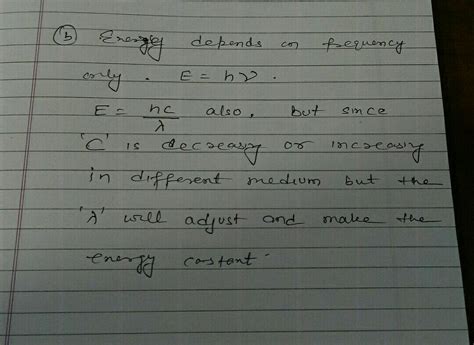 (b) Energy depends on frequency
only . E = hν .
E = hc/λ also, but since
'C' is decreasing or increasing
in different medium but the
'λ' will adjust and make the
energy costant .